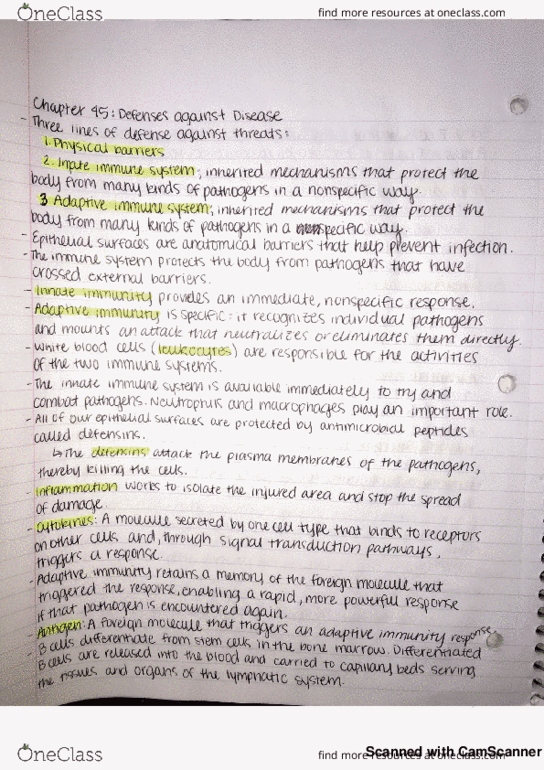 OneClass
find more resources at oneclass.com
Chapter 45: Defenses against Disease
- Three lines of defense against threats:
1. Physical barriers
2. Innate immune system; inherited mechanisms that protect the
body from many kinds of pathogens in a nonspecific way.
3 Adaptive immune system; inherited mechanisms that protect the
body from many kinds of pathogens in a specific way.
- Epithelial surfaces are anatomical barriers that help prevent infection.
- The immune system protects the body from pathogens that have
crossed external barriers.
- Innate immunity provides an immediate, nonspecific response.
- Adaptive immunity is specific: it recognizes individual pathogens
and mounts an attack that neutralizes or eliminates them directly.
- White blood cells (leukocytes) are responsible for the activities
of the two immune systems.
- The innate immune system is available immediately to try and
combat pathogens. Neutrophils and macrophages play an important role.
- All of our epithelial surfaces are protected by antimicrobial peptides
called defensins.
↳ The defensins attack the plasma membranes of the pathogens,
thereby killing the cells.
- Inflammation works to isolate the injured area and stop the spread
of damage.
- Cytokines: A molecule secreted by one cell type that binds to receptors
on other cells and, through signal transduction pathways,
triggers a response.
- Adaptive immunity retains a memory of the foreign molecule that
triggered the response, enabling a rapid, more powerful response
if that pathogen is encountered again.
- Antigen: A foreign molecule that triggers an adaptive immunity response.
- B cells differentiate from stem cells in the bone marrow. Differentiated
B cells are released into the blood and carried to capillary beds serving
the tissues and organs of the lymphatic system.
OneClass
find more resources at oneclass.com
Scanned with CamScanner